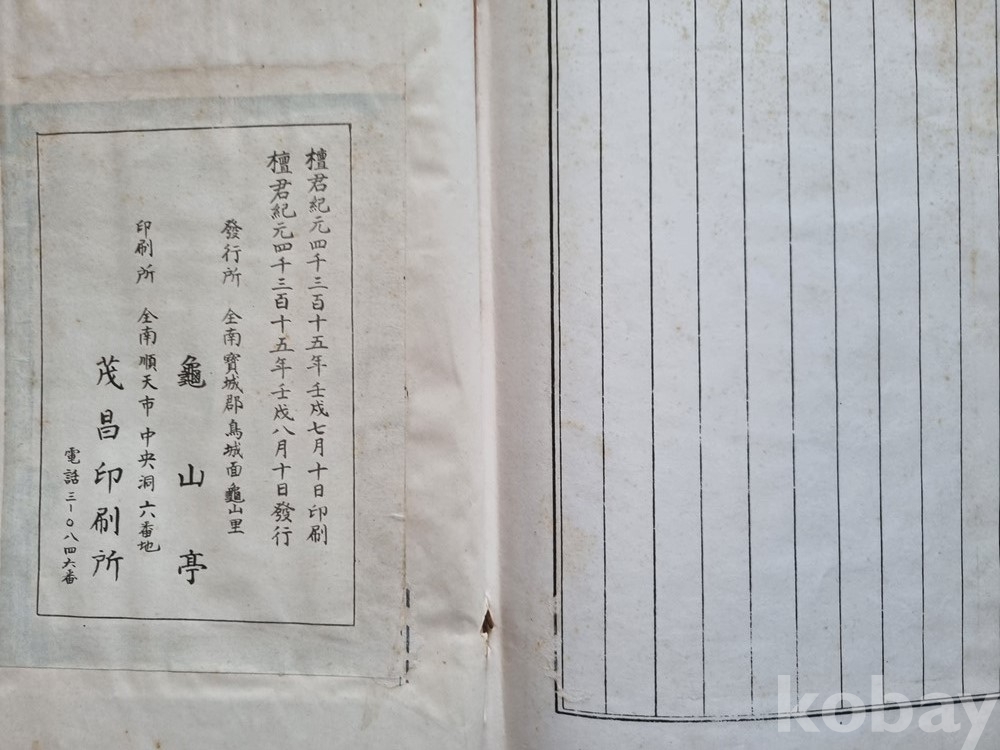 檀君紀元四千三百十五年壬戌七月十日印刷
檀君紀元四千三百十五年壬戌八月十日發行
發行所 全南寶城郡鳥城面龜山里
龜山亭
印刷所 全南順天市中央洞六番地
茂昌印刷所
電話三-〇八四六番
kobay